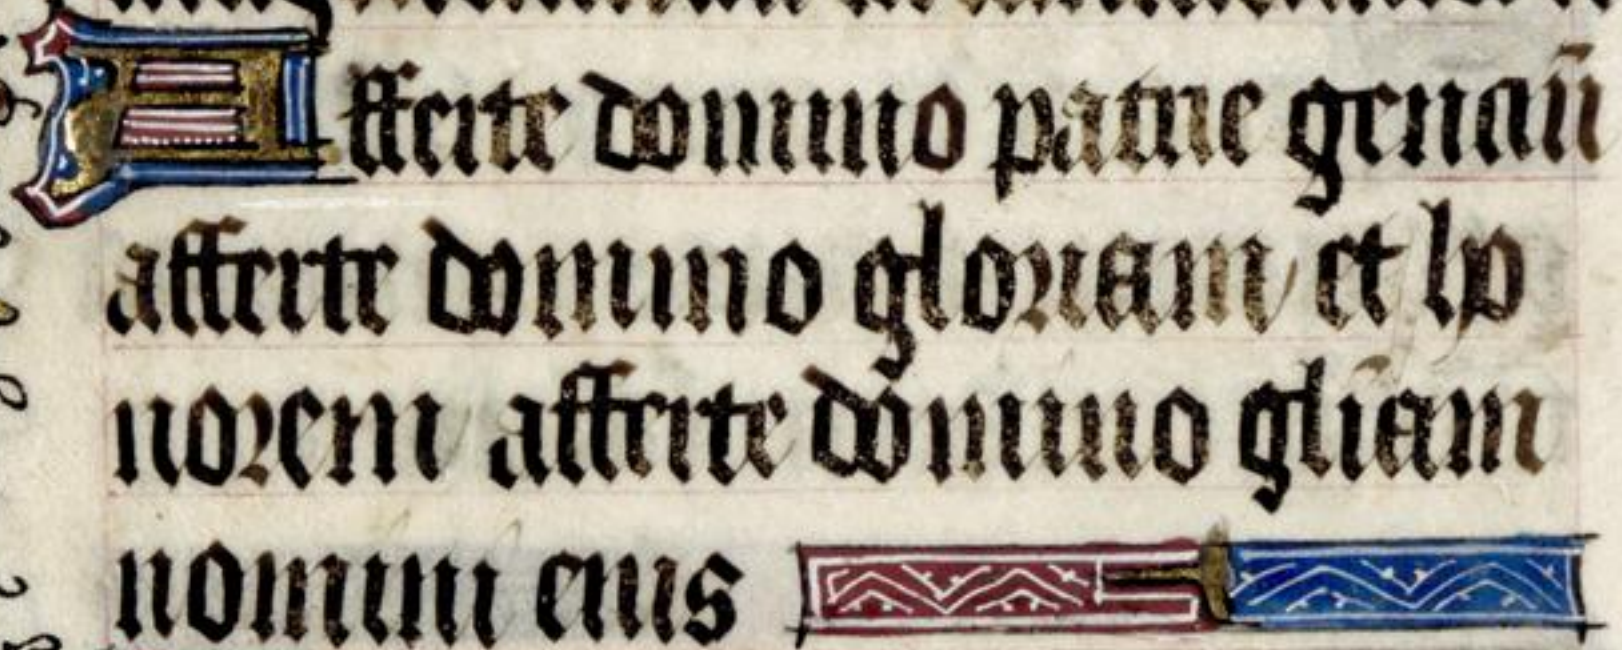 Afferte domino patrie genciū
afferte domino gloriam et ho
norem afferte domino gliam
nomini eius